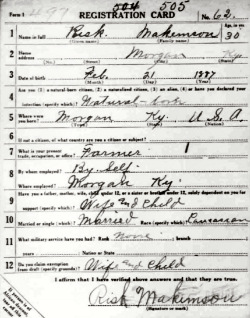 504 505
Form 1 REGISTRATION CARD No. 62
1 Name in full Risk Makinson Age, in yrs. 30
(Given name) (Family name)
2 Home address Morgan Ky.
(No.) (Street) (City) (State)
3 Date of birth Feb. 21 1887
(Month) (Day) (Year)
4 Are you (1) a natural-born citizen, (2) a naturalized citizen, (3) an alien, (4) or have you declared your intention (specify which)? Natural-born
5 Where were you born? Morgan Ky. U.S.A.
(Town) (State) (Nation)
6 If not a citizen, of what country are you a citizen or subject?
7 What is your present trade, occupation, or office? Farmer
8 By whom employed? By Self
Where employed? Morgan Ky.
9 Have you a father, mother, wife, child under 12, or a sister or brother under 12, solely dependent on you for support (specify which)? Wife and Child
10 Married or single (which)? Married Race (specify which)? Caucasian
11 What military service have you had? Rank None branch
years Nation or State
12 Do you claim exemption from draft (specify grounds)? Wife and Child
I affirm that I have verified above answers and that they are true.
Risk Makinson
(Signature or mark)